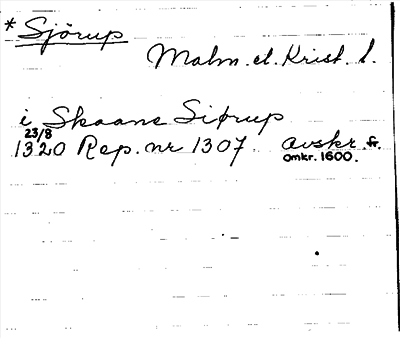 * Sjörup
Malm. el. Krist. l.
i Skaane Siørup
23/8
1320 Rep. nr 1307. avskr. fr.
omkr. 1600.